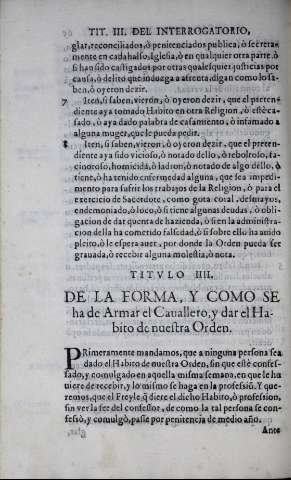 TIT. III. DEL INTERROGATORIO,
glar, reconciliados, ò penitenciados publica, ò secreta-
mente en cadahalso, Iglesia, ò en qualquier otra parte. ò
si han sido castigados por otras qualesquier justicias por
causa, ò delito que induzga a afrenta, digan como lo sa-
ben, ò oyeron dezir.
7 Iten, si saben, vieron, ò oyeron dezir, que el preten-
diente aya tomado Habito en otra Religion, ò estè ca-
sado, ò aya dado palabra de casamiento, ò infamado a
alguna muger, que le pueda pedir.
8 Iten, si saben, vieron, ò oyeron dezir, que el preten-
diente aya sido vicioso, ò notado dello, ò reboltoso, fa-
cinoroso, homicida, ò ladron, ò notado de algo dello, ò
tiene, ò ha tenido enfermedad alguna, que sea impedi-
mento para sufrir los trabajos de la Religion, ò para el
exercicio de Sacerdote, como gota coral, desmayos,
endemoniado, ò loco; ò si tiene algunas deudas, ò obli-
gacion de dar quenta de hazienda, ò si en la administra-
cion della ha cometido falsedad, ò si sobre ello ha auido
pleito, ò le espera auer, por donde la Orden pueda ser
grauada, ò recebir alguna molestia, ò nota.
TITVLO IIII.
DE LA FORMA, Y COMO SE
ha de Armar el Cauallero, y dar el Ha-
bito de nuestra Orden.
PRimeramente mandamos, que a ninguna persona sea
dado el Habito de nuestra Orden, sin que estè confes-
sado, y comulgado en aquella misma semana, en que le hu
uiere de recebir, y lo mismo se haga en la professiõ. Y que-
remos, que el Freyle q̃ diere el dicho Habito, ò profession,
sin ver la fee del confessor, de como la tal persona se con-
fessò, y comulgò, passe por penitencia de medio año.
Ante